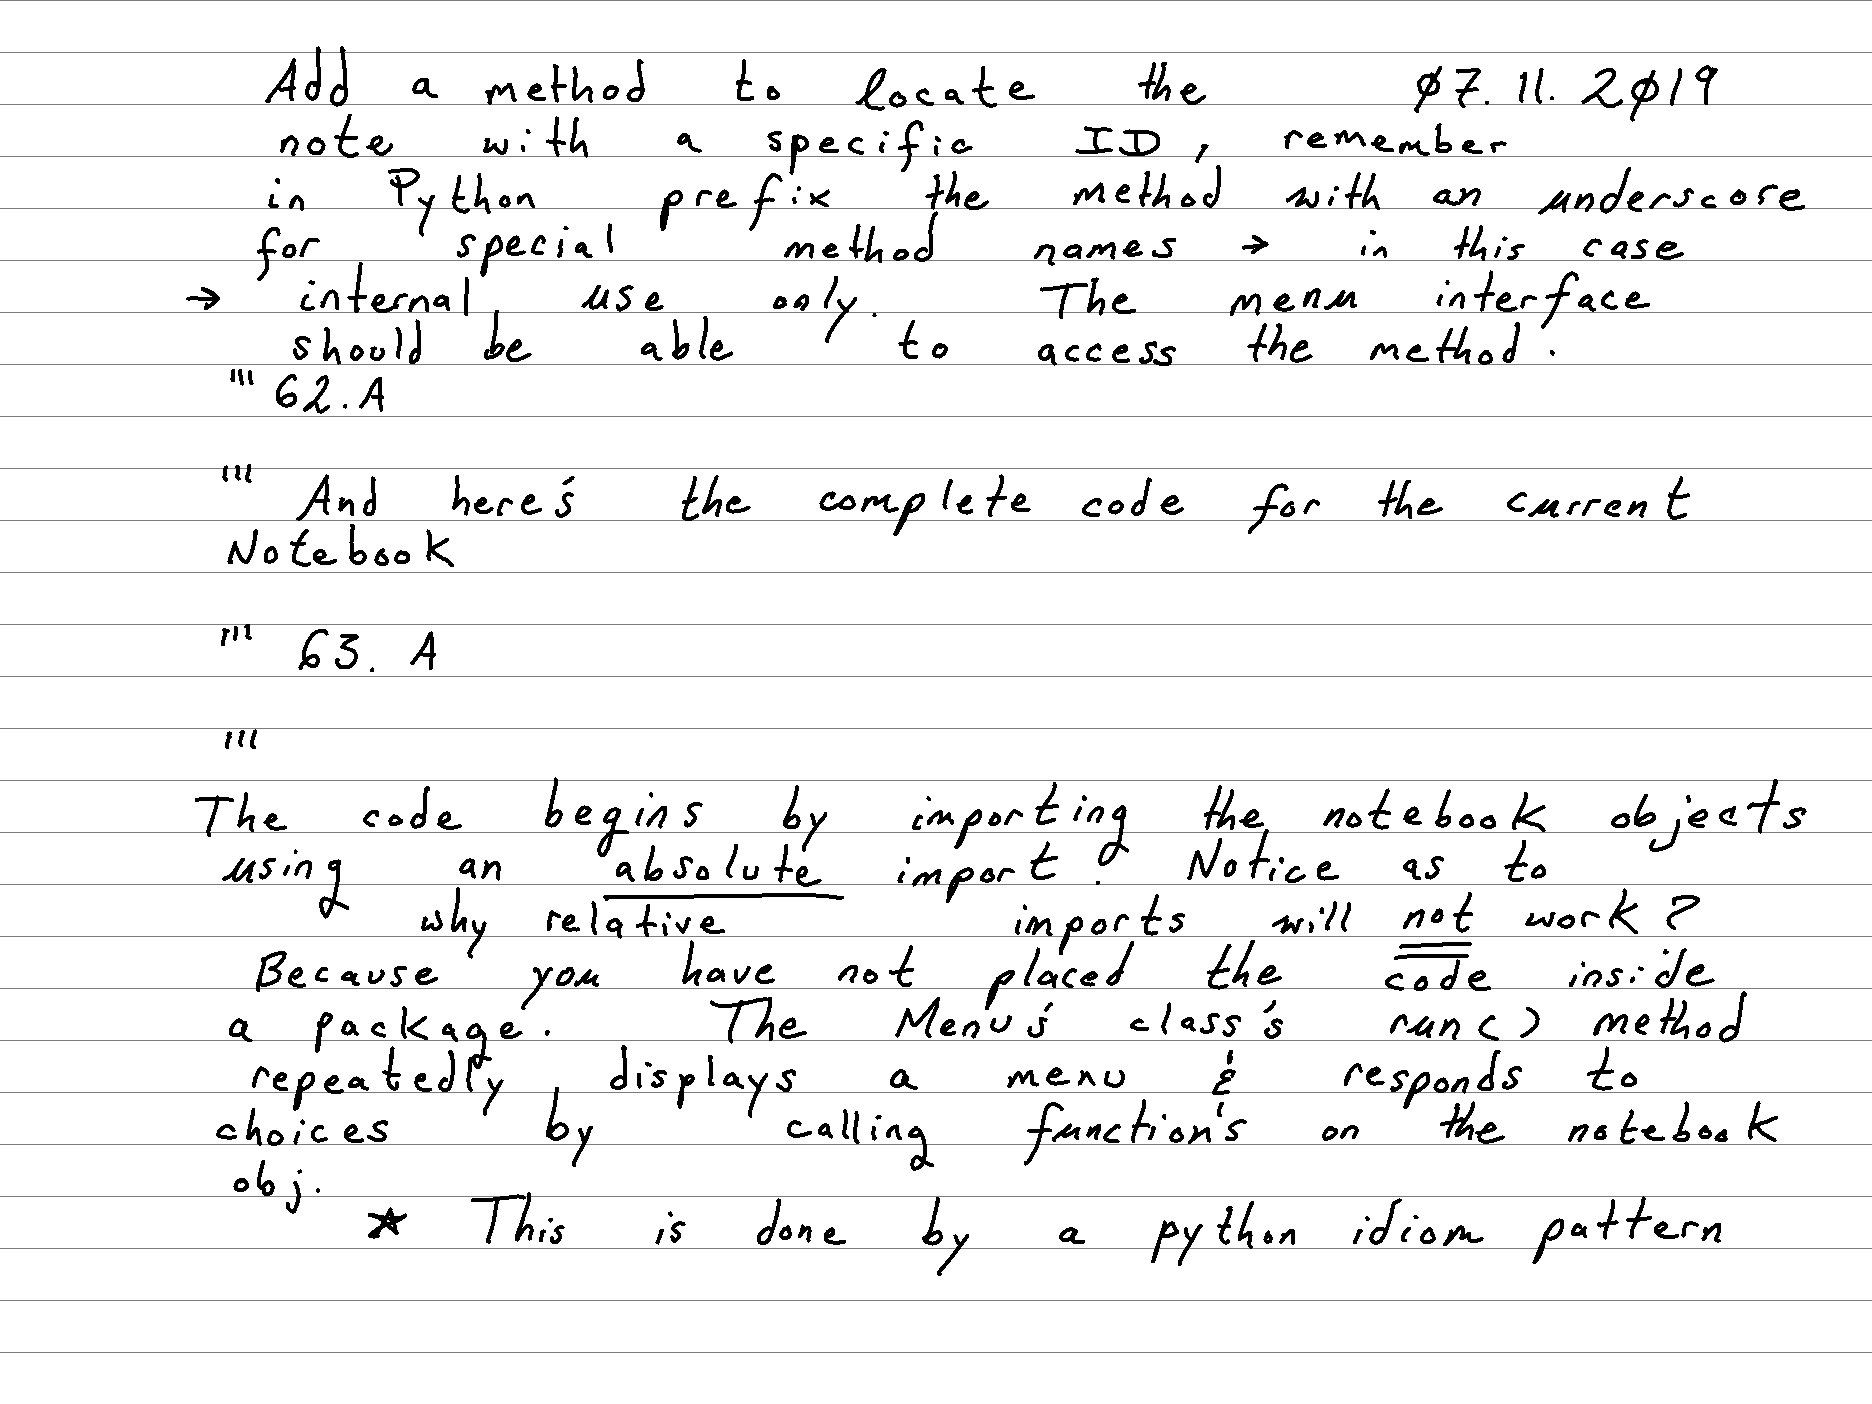 Add a method to locate the Ø7.11.2Ø19
note with a specific ID, remember
in Python prefix the method with an underscore
for special method names → in this case
→ internal use only. The menu interface
should be able to access the method.
''' 62.A
''' And here's the complete code for the current
Notebook
''' 63. A
'''
The code begins by importing the notebook objects
using an absolute import. Notice as to
why relative imports will not work?
Because you have not placed the code inside
a package. The Menu's class's run() method
repeatedly, displays a menu & responds to
choices by calling function's on the notebook
obj.
★ This is done by a python idiom pattern